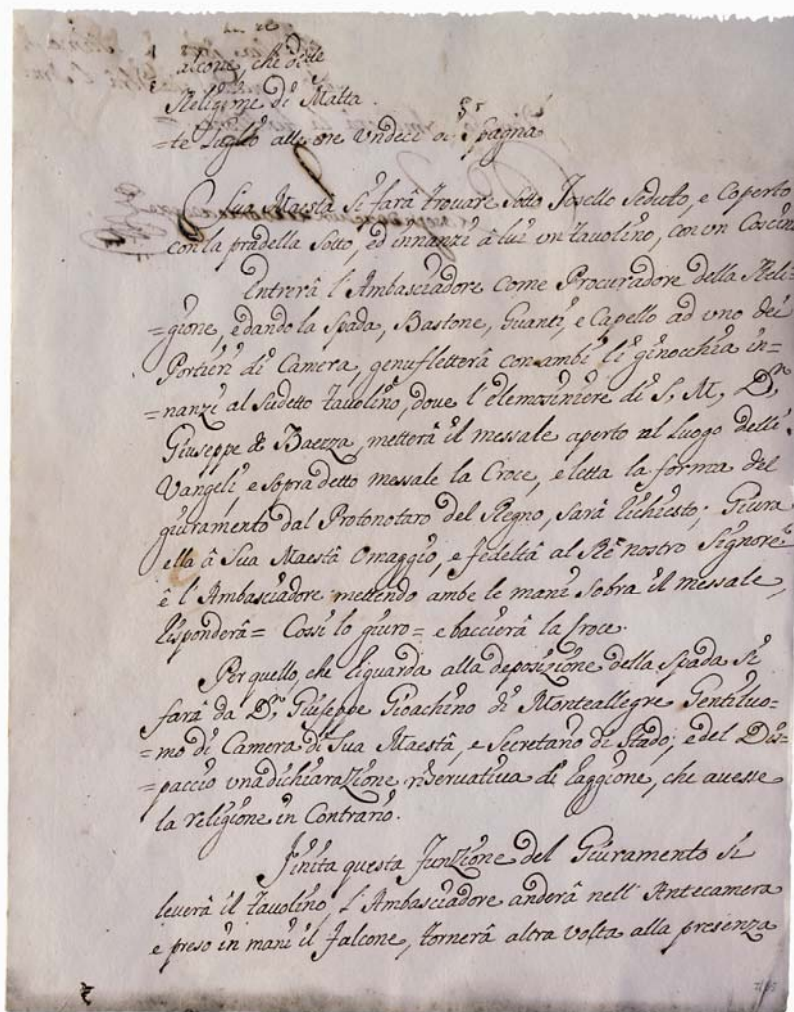 alcone, che deve
Religione di Malta.
=te Luglio alle ore Undeci di Spagna
Sua Maestà si farà trovare sotto Josello seduto, e Coperto
con la pradella sotto, ed innanzi à lui un tavolino, con un Coscin
Entrerà l'Ambasciadore come Procuradore della Reli=
=gione, e dando la Spada, Bastone, Guanti, e Capello ad uno dei
Portieri di Camera, genufletterà con ambi li ginocchia in=
=nanzi al sudetto tavolino, dove l'elemosiniere di S. M., Dn
Giuseppe de Baezza, metterà il messale aperto al Luogo delli
Vangeli, e sopra detto messale la Croce, e letta la forma del
giuramento dal Protonotaro del Regno, sarà richiesto; Giura
ella à Sua Maestà Omaggio, e fedeltà al Rè nostro Signore
è l'Ambasciadore mettendo ambe le mani sobra il messale,
risponderà= Cossì lo giuro= e bacierà la Croce.
Per quello, che riguarda alla deposizione della Spada si
farà da Dn Giuseppe Gioachino di Monteallegre Gentiluo=
=mo di Camera di Sua Maestà, e Secretario di Stado, e del Dis=
=paccio una dichiarazione riservativa di raggione, che avesse
la religione in Contrario.
Finita questa Funzione del Giuramento si
leverà il tavolino, l'Ambasciadore anderà nell'Antecamera
e preso in mani il Falcone, tornerà altra volta alla presenza